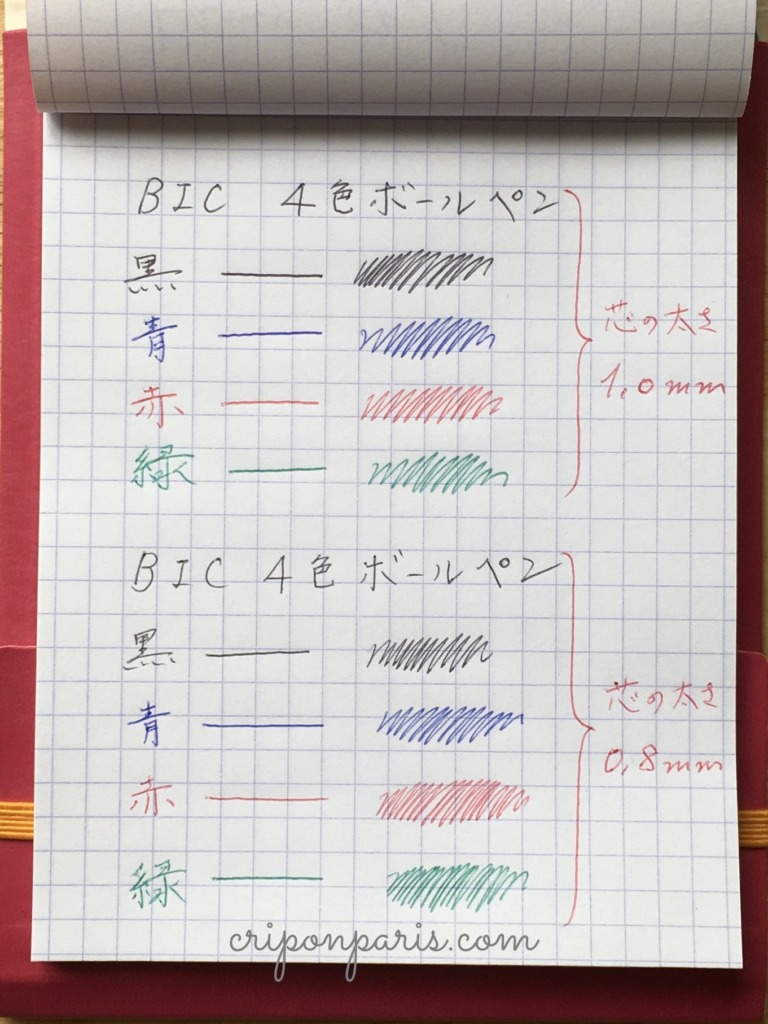 BIC 4色ボールペン
黒
青
赤
緑
芯の太さ
1,0mm
BIC 4色ボールペン
黒
青
赤
緑
芯の太さ
0,8mm
criponparis.com